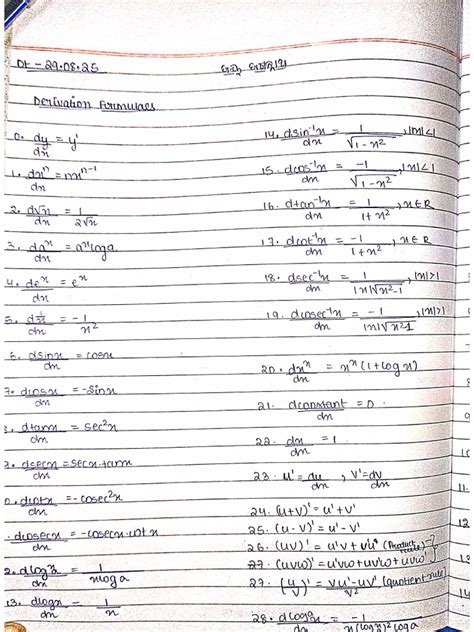 Dt - 29.08.25
Derivation Formulaes
0. dy/dx = y'
1. dx^n/dx = nx^(n-1)
2. d√x/dx = 1/(2√x)
3. da^x/dx = a^x log a
4. de^x/dx = e^x
5. d(1/x)/dx = -1/x²
6. dsinx/dx = cosx
7. dcosx/dx = -sinx
8. dtanx/dx = sec²x
9. dsecx/dx = secx.tanx
0. dcotx/dx = -cosec²x
. dcosecx/dx = -cosecx.cotx
2. dlog x/dx = 1/(xloga)
13. dlogx/dx = 1/x
14. dsin⁻¹x/dx = 1/√(1-x²), |x|<1
15. dcos⁻¹x/dx = -1/√(1-x²), |x|<1
16. dtan⁻¹x/dx = 1/(1+x²), x∈R
17. dcot⁻¹x/dx = -1/(1+x²), x∈R
18. dsec⁻¹x/dx = 1/(|x|√(x²-1)), |x|>1
19. dcosec⁻¹x/dx = -1/(|x|√(x²-1)), |x|>1
20. dx^x/dx = x^x(1+logx)
21. dconstant/dx = 0
22. dx/dx = 1
23. u' = du/dx, v' = dv/dx
24. (u+v)' = u'+v'
25. (u-v)' = u'-v'
26. (uv)' = u'v+v'u (Product rule)
27. (uvw)' = u'vw+uv'w+uvw'
27. (u/v)' = (vu'-uv')/v² (quotient rule)
28. dlog a/dx = -1/(x(logx)² loga)
11.
12
13
14